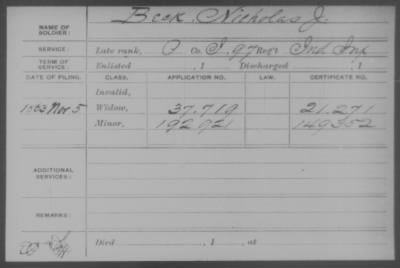 NAME OF SOLDIER: Beck, Nicholas J.
SERVICE: Late rank, P Co. I, 97 Reg't Ind Inf
TERM OF SERVICE: Enlisted , 1 Discharged , 1
DATE OF FILING. CLASS. APPLICATION NO. LAW. CERTIFICATE NO.
Invalid,
1863 Nov 5 Widow, 37.719 21.271
Minor, 192 921 149352
ADDITIONAL SERVICES:
REMARKS:
Died , 1 , at